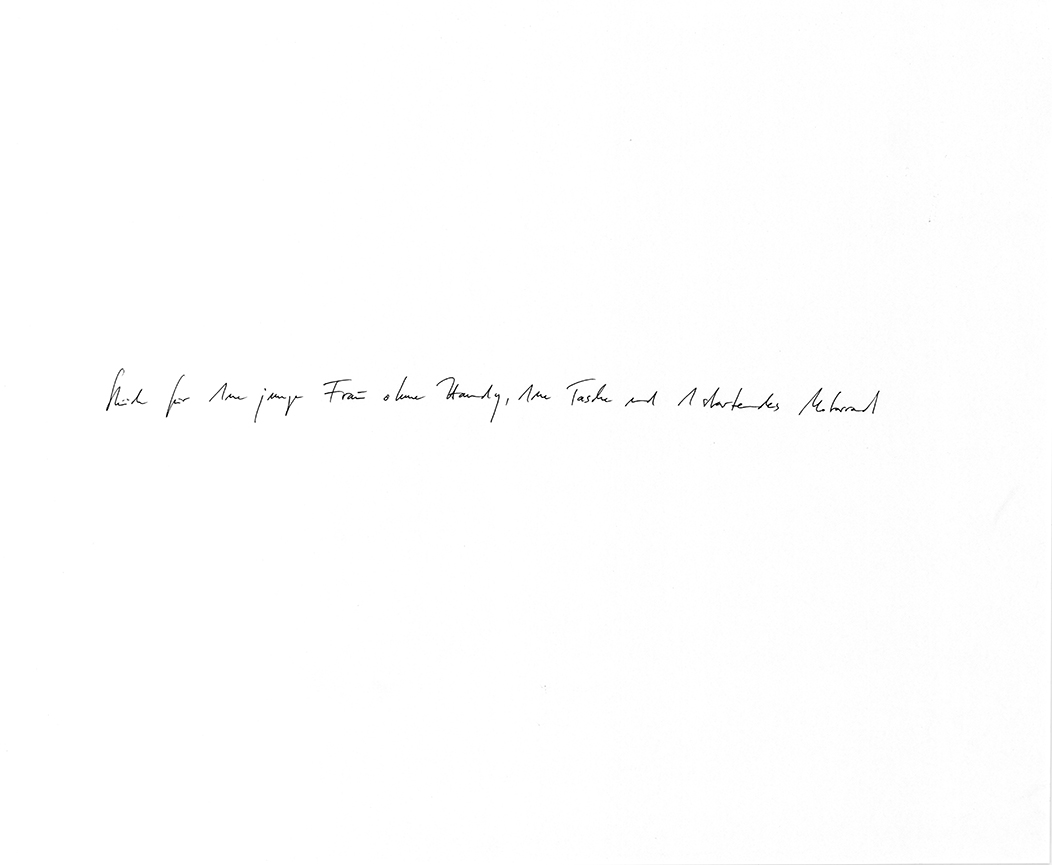 Stück für 1ne junge Frau ohne Handy, 1ne Tasche und 1 startendes Motorrad